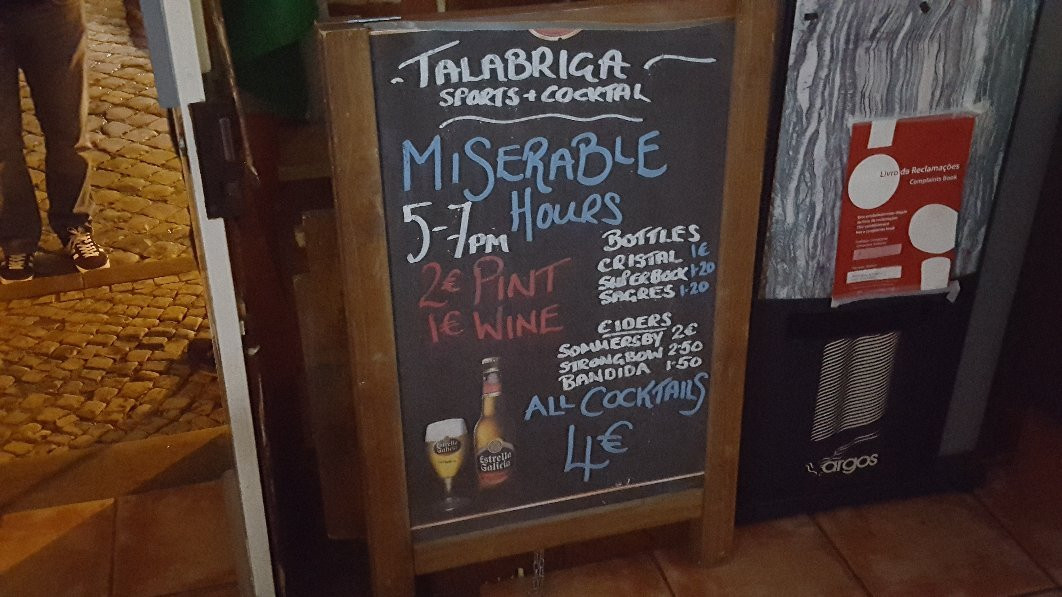 TALABRIGA
SPORTS + COCKTAL
MISERABLE
HOURS
5-7PM
2€ PINT
1€ WINE
BOTTLES
CRISTAL 1€
SUPERBOCK 1·20
SAGRES 1·20
CIDERS
SOMMERSBY 2€
STRONGBOW 2·50
BANDIDA 1·50
ALL COCKTAILS
4€
Estrella
Galicia
Estrella
Galicia
Livro da Reclamações
Complaints Book
argos